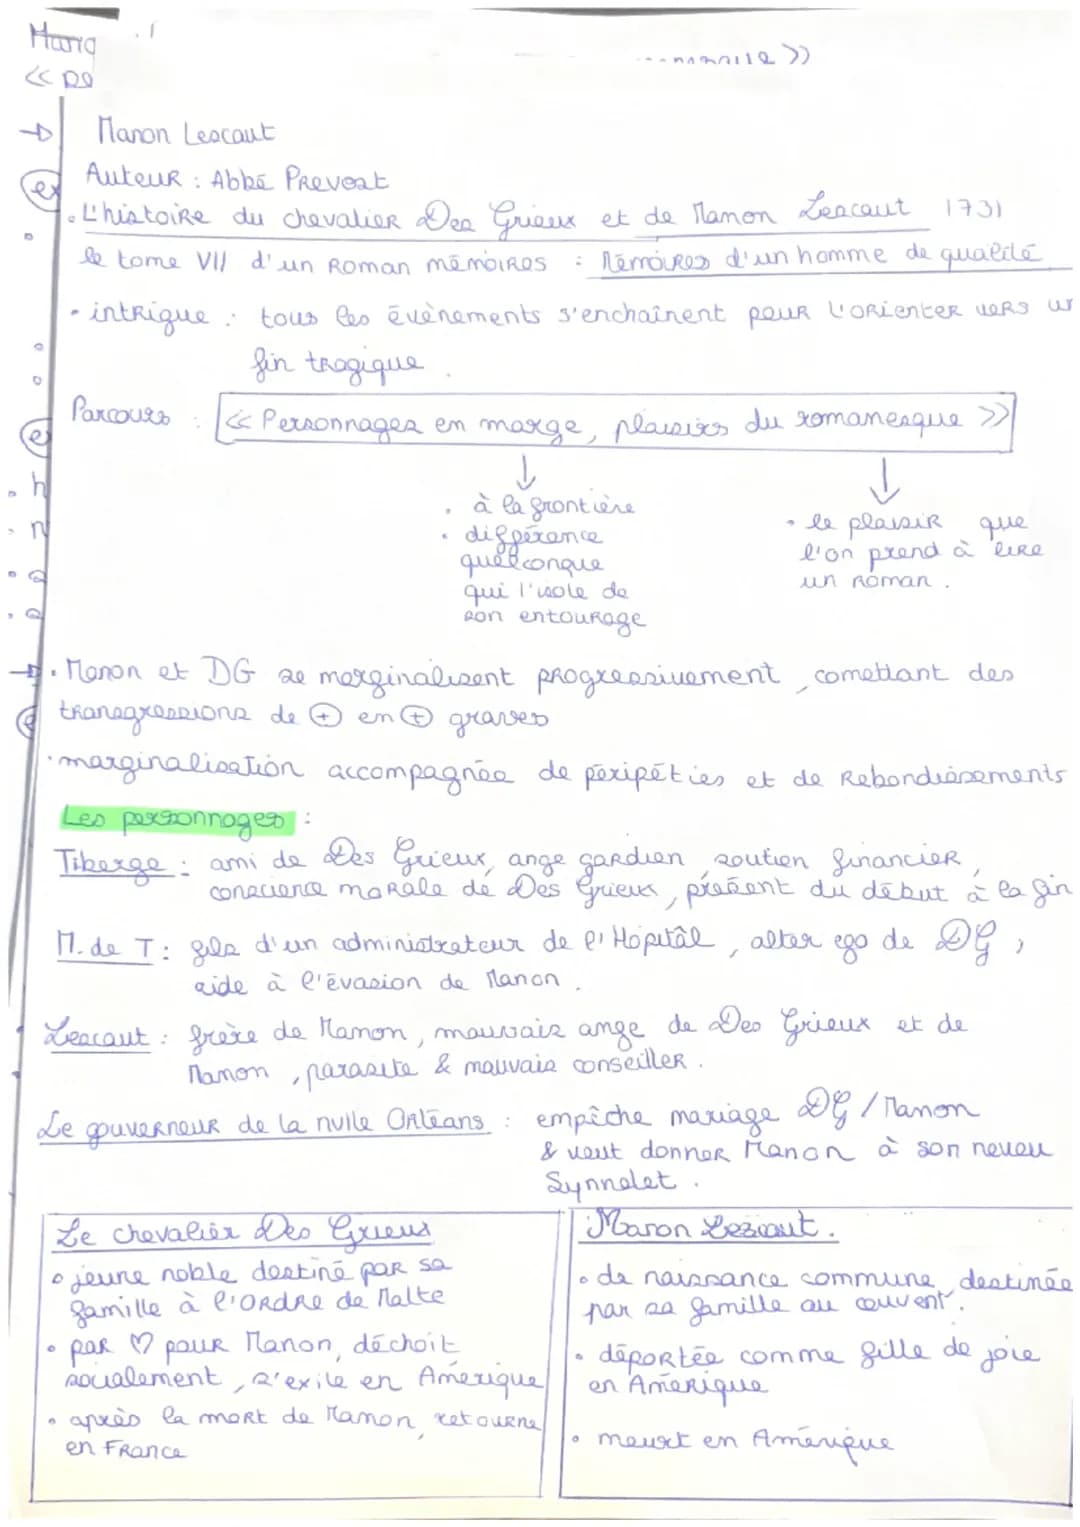 Manon Lescaut
Auteur : Abbé Prevost
• L'histoire du chevalier Des Grieux et de Manon Lescaut 1731
le tome VII d'un Roman mémoires : Mémoires d'un homme de qualité
• intrigue : tous les évènements s'enchaînent pour l'orienter vers
fin tragique.
Parcours : << Personnages en marge, plaisirs du romanesque >>
• à la frontière
• différence
quelconque
qui l'isole de
son entourage
• le plaisir que
l'on prend à lire
un roman.
• Manon et DG se marginalisent progressivement, comettant des
transgressions de + en + graves
• marginalisation accompagnée de péripéties et de Rebondissements
Les personnages :
Tiberge : ami de Des Grieux, ange gardien, soutien financier,
conscience morale de Des Grieux, présent du début à la fin
M. de T : fils d'un administrateur de l'Hôpitâl, alter ego de DG,
aide à l'évasion de Manon.
Lescaut : frère de Manon, mauvais ange de Des Grieux et de
Manon, parasite & mauvais conseiller.
Le gouverneur de la nvlle Orléans : empêche mariage DG / Manon
& veut donner Manon à son neveu
Synnelet.
Le chevalier Des Grieux
• jeune noble destiné par sa
famille à l'Ordre de Malte
• par ♡ pour Manon, déchoit
socialement, s'exile en Amérique
• après la mort de Manon, retourne
en France
Manon Lescaut.
• de naissance commune, destinée
par sa famille au couvent.
• déportée comme fille de joie
en Amérique
• meurt en Amérique